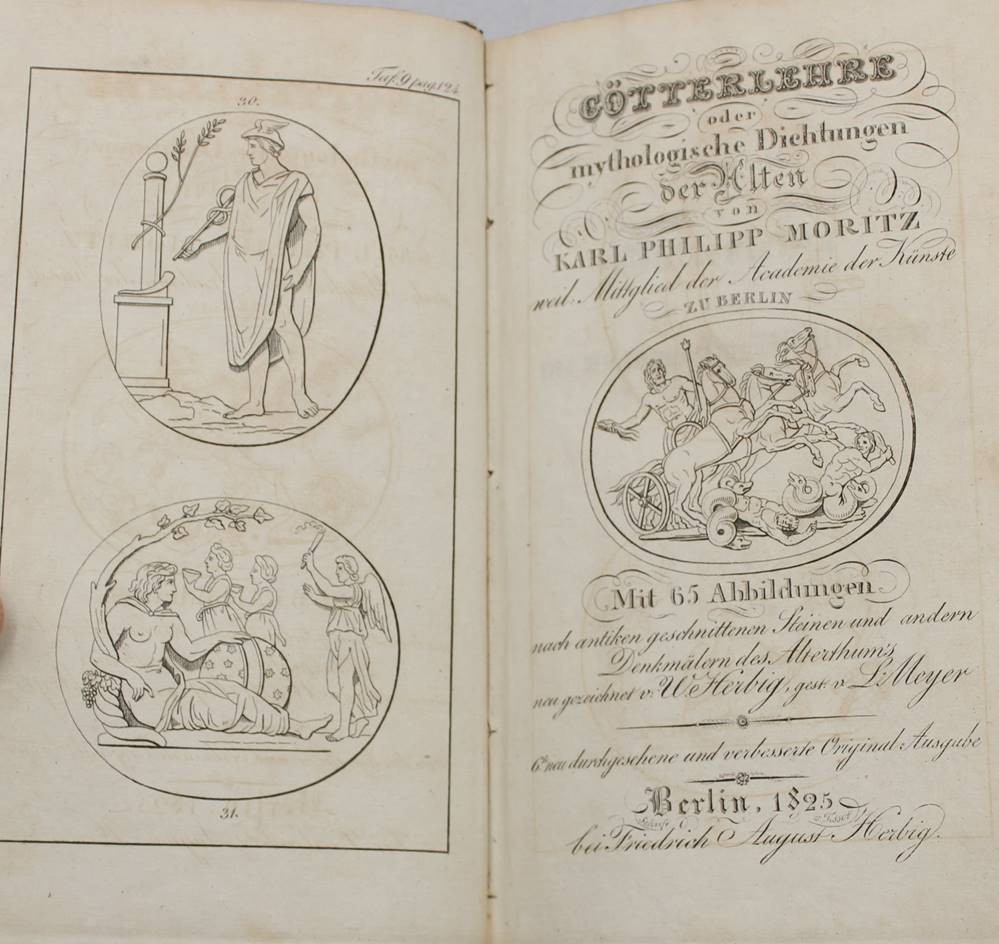 Taf. 9 pag. 124
30.
31.
GÖTTERLEHRE
oder
mythologische Dichtungen
der Alten
von
KARL PHILIPP MORITZ
weil. Mitglied der Academie der Künste
ZU BERLIN
Mit 65 Abbildungen
nach antiken geschnittenen Steinen und andern
Denkmälern des Alterthums
neu gezeichnet v. W. Herbig, gest. v. L. Meyer
6te neu durchgesehene und verbesserte Original-Ausgabe
Berlin, 1825
bei Friedrich August Herbig.